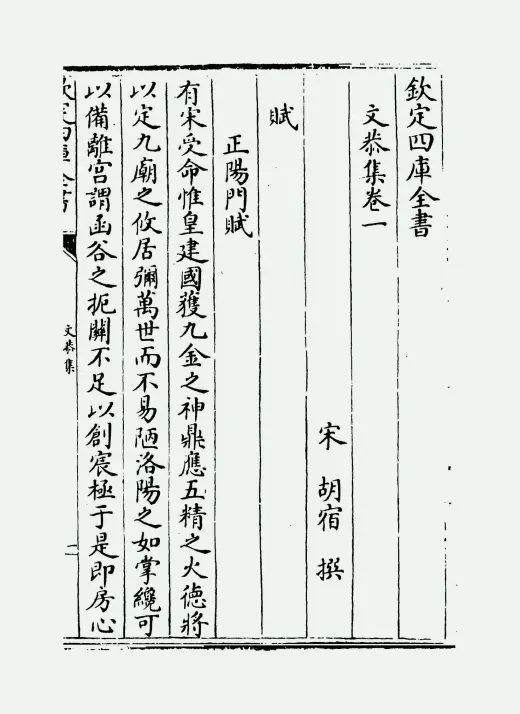 欽定四庫全書
文恭集卷一
宋 胡宿 撰
賦
正陽門賦
有宋受命惟皇建國獲九金之神鼎應五精之火德將
以定九廟之攸居彌萬世而不易陋洛陽之如掌纔可
以備離宫謂函谷之扼關不足以創宸極于是即房心
欽定四庫全書
文恭集
一